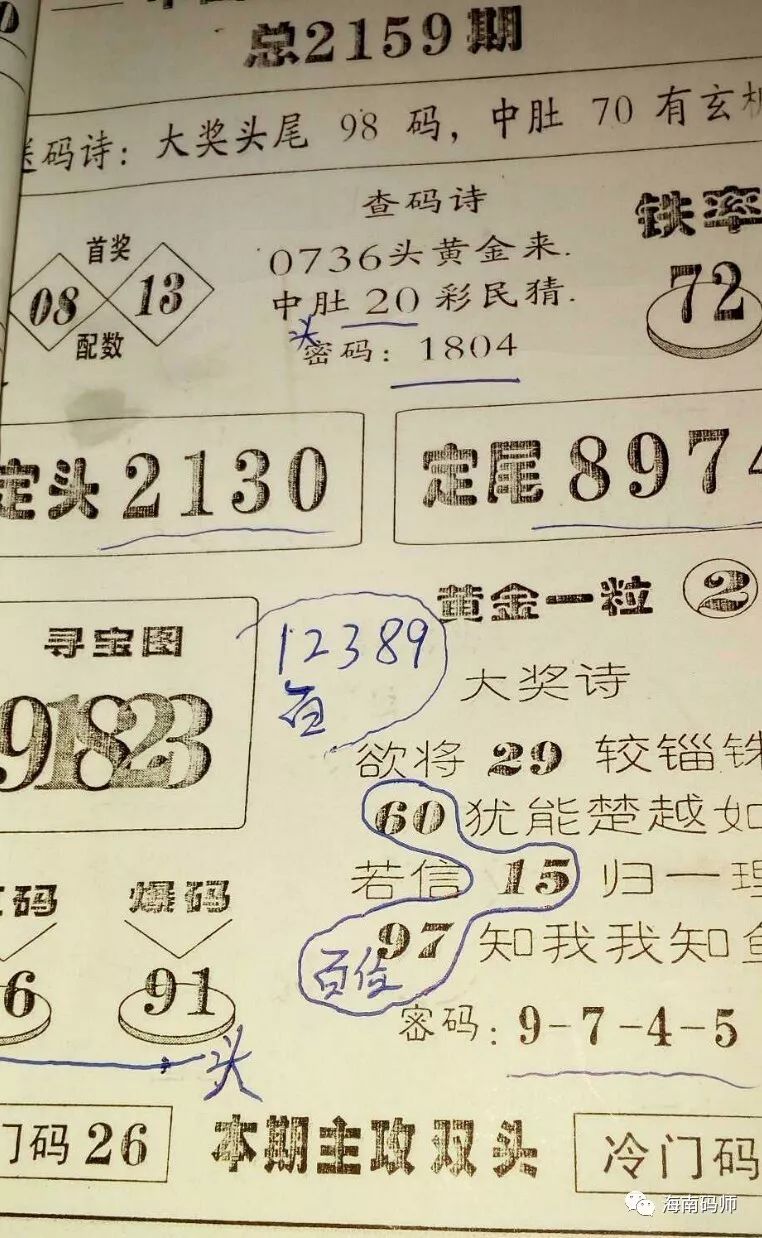 总2159期
送码诗：大奖头尾 98 码，中肚 70 有玄机
查码诗
0736头黄金来.
中肚 20 彩民猜.
头
密码：1804
首奖
08 13
配数
铁率
72
定头 2130
定尾 8974
寻宝图
91823
12389
百
黄金一粒 2
大奖诗
欲将 29 较锱铢
60 犹能楚越如
若信 15 归一理
97 知我我知鱼
百位
密码：9-7-4-5
码
6
爆码
91
头
门码 26
本期主攻双头
冷门码
海南码师